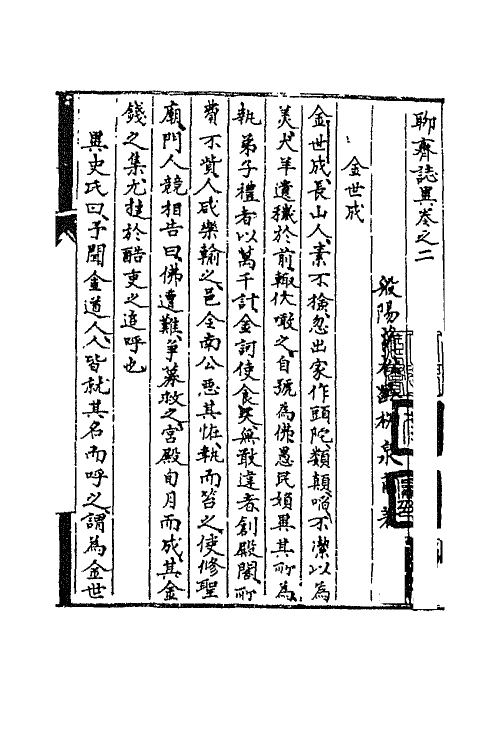 聊齋誌異卷之二
般陽蒲松齡柳泉甫著
金世成
金世成長山人素不撿忽出家作頭陀類顛啗不潔以為
美犬羊遺穢於前輙伏噉之自號為佛愚民婦異其所為
執弟子禮者以萬千計金訶使食矢無敢違者創殿閣所
費不貲人咸樂輸之邑令南公惡其恠執而笞之使修聖
廟門人競相告曰佛遭難爭募救之宮殿旬月而成其金
錢之集尤捷於酷吏之追呼也
異史氏曰予聞金道人人皆就其名而呼之謂為金世